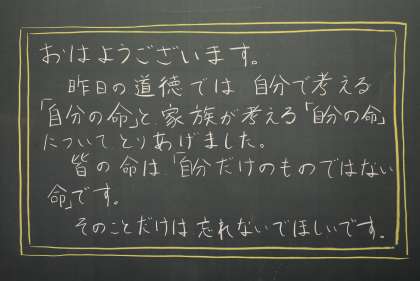 おはようございます。
昨日の道徳では 自分で考える
「自分の命」と家族が考える「自分の命」
についてとりあげました。
皆の命は「自分だけのものではない
命」です。
そのことだけは忘れないでほしいです。